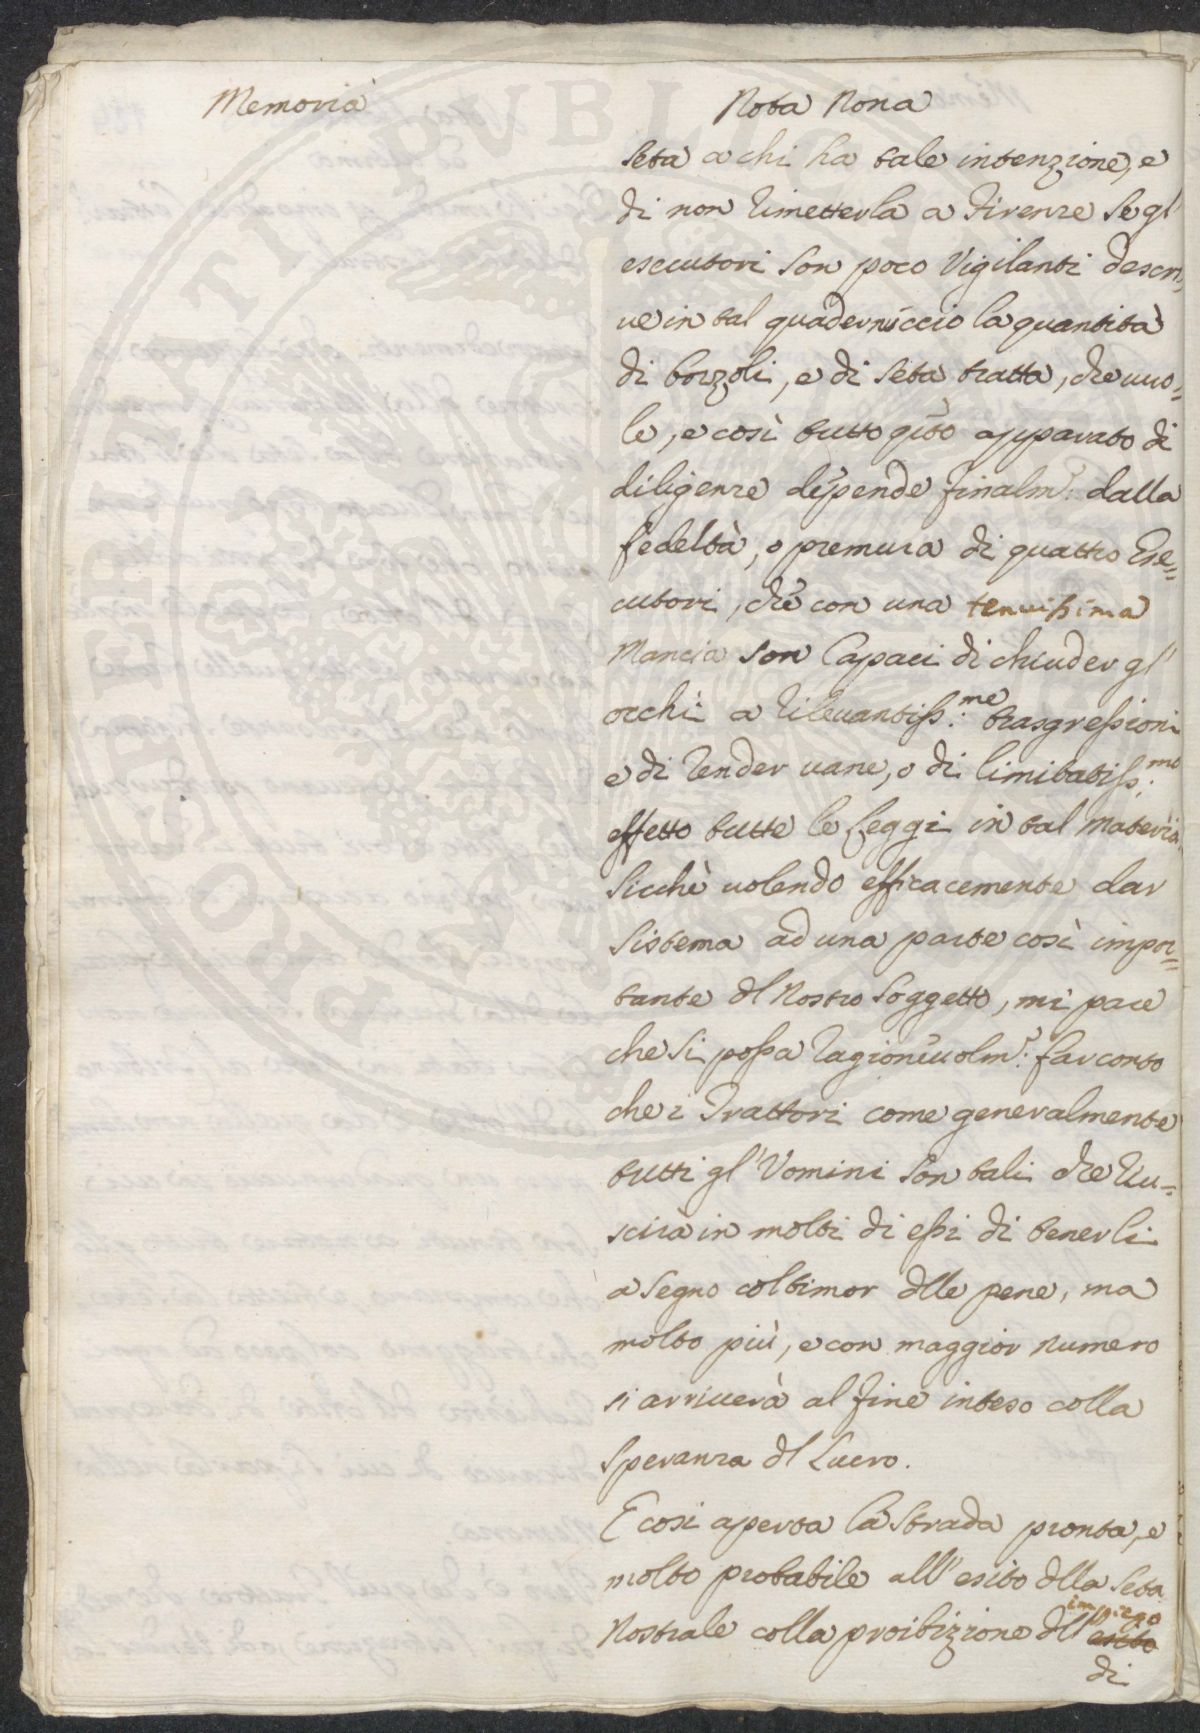 Memoria
Nota Nona
seta a chi ha tale intenzione, e
di non rimetterla a Firenze se gl'
esecutori son poco vigilanti descri,,
ve in tal quadernuccio la quantità
di bozzoli, e di seta tratta, che vuo=
le, e così tutto q̃sto apparato di
diligenze dipende finalm:̃ dalla
fedeltà, o premura di quattro Ese=
cutori, che con una tenuissima
Mancia son Capaci di chiuder gl'
occhi a rilevantiss:me trasgressioni
e di render vane, o di limitatiss:mo
effetto tutte le Leggi in tal materia.
Sicchè volendo efficacemente dar
sistema ad una parte così impor=
tante dl Nostro Soggetto, mi pare
che si possa ragionevolm:̃ far conto
che i Trattori come generalmente
tutti gl'Uomini son tali che riu=
scirà in molti di essi di tenerli
a segno col timor dlle pene, ma
molto più, e con maggior numero
si arriverà al fine inteso colla
Speranza dl Lucro.
E così aperta la strada pronta, e
molto probabile all'esito dlla Seta
impiego
Nostrale colla proibizione dll' esito
di
PROSPERITATI PUBLICAE